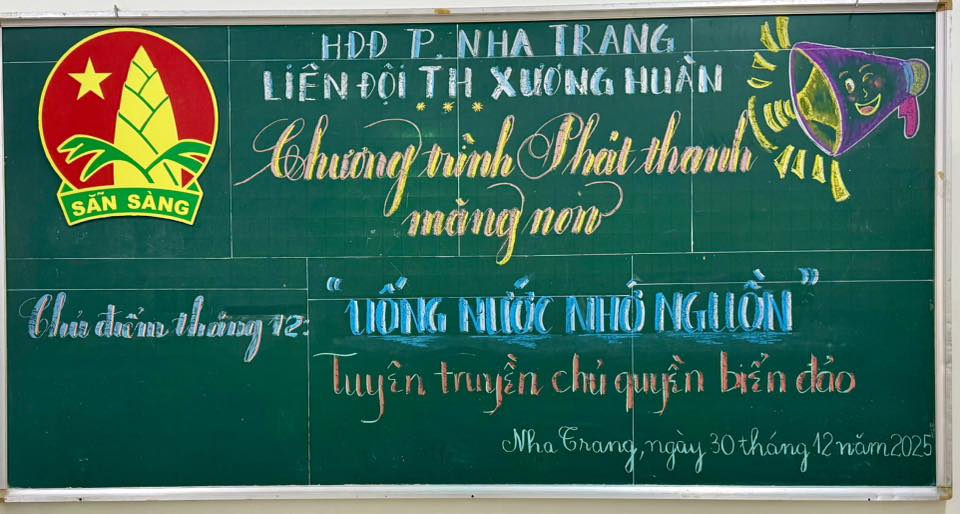 HĐĐ P. NHA TRANG
LIÊN ĐỘI TH XƯƠNG HUÂN
Chương trình Phát thanh
măng non
SẴN SÀNG
Chủ điểm tháng 12:
"UỐNG NƯỚC NHỚ NGUỒN"
Tuyên truyền chủ quyền biển đảo
Nha Trang, ngày 30 tháng 12 năm 2025